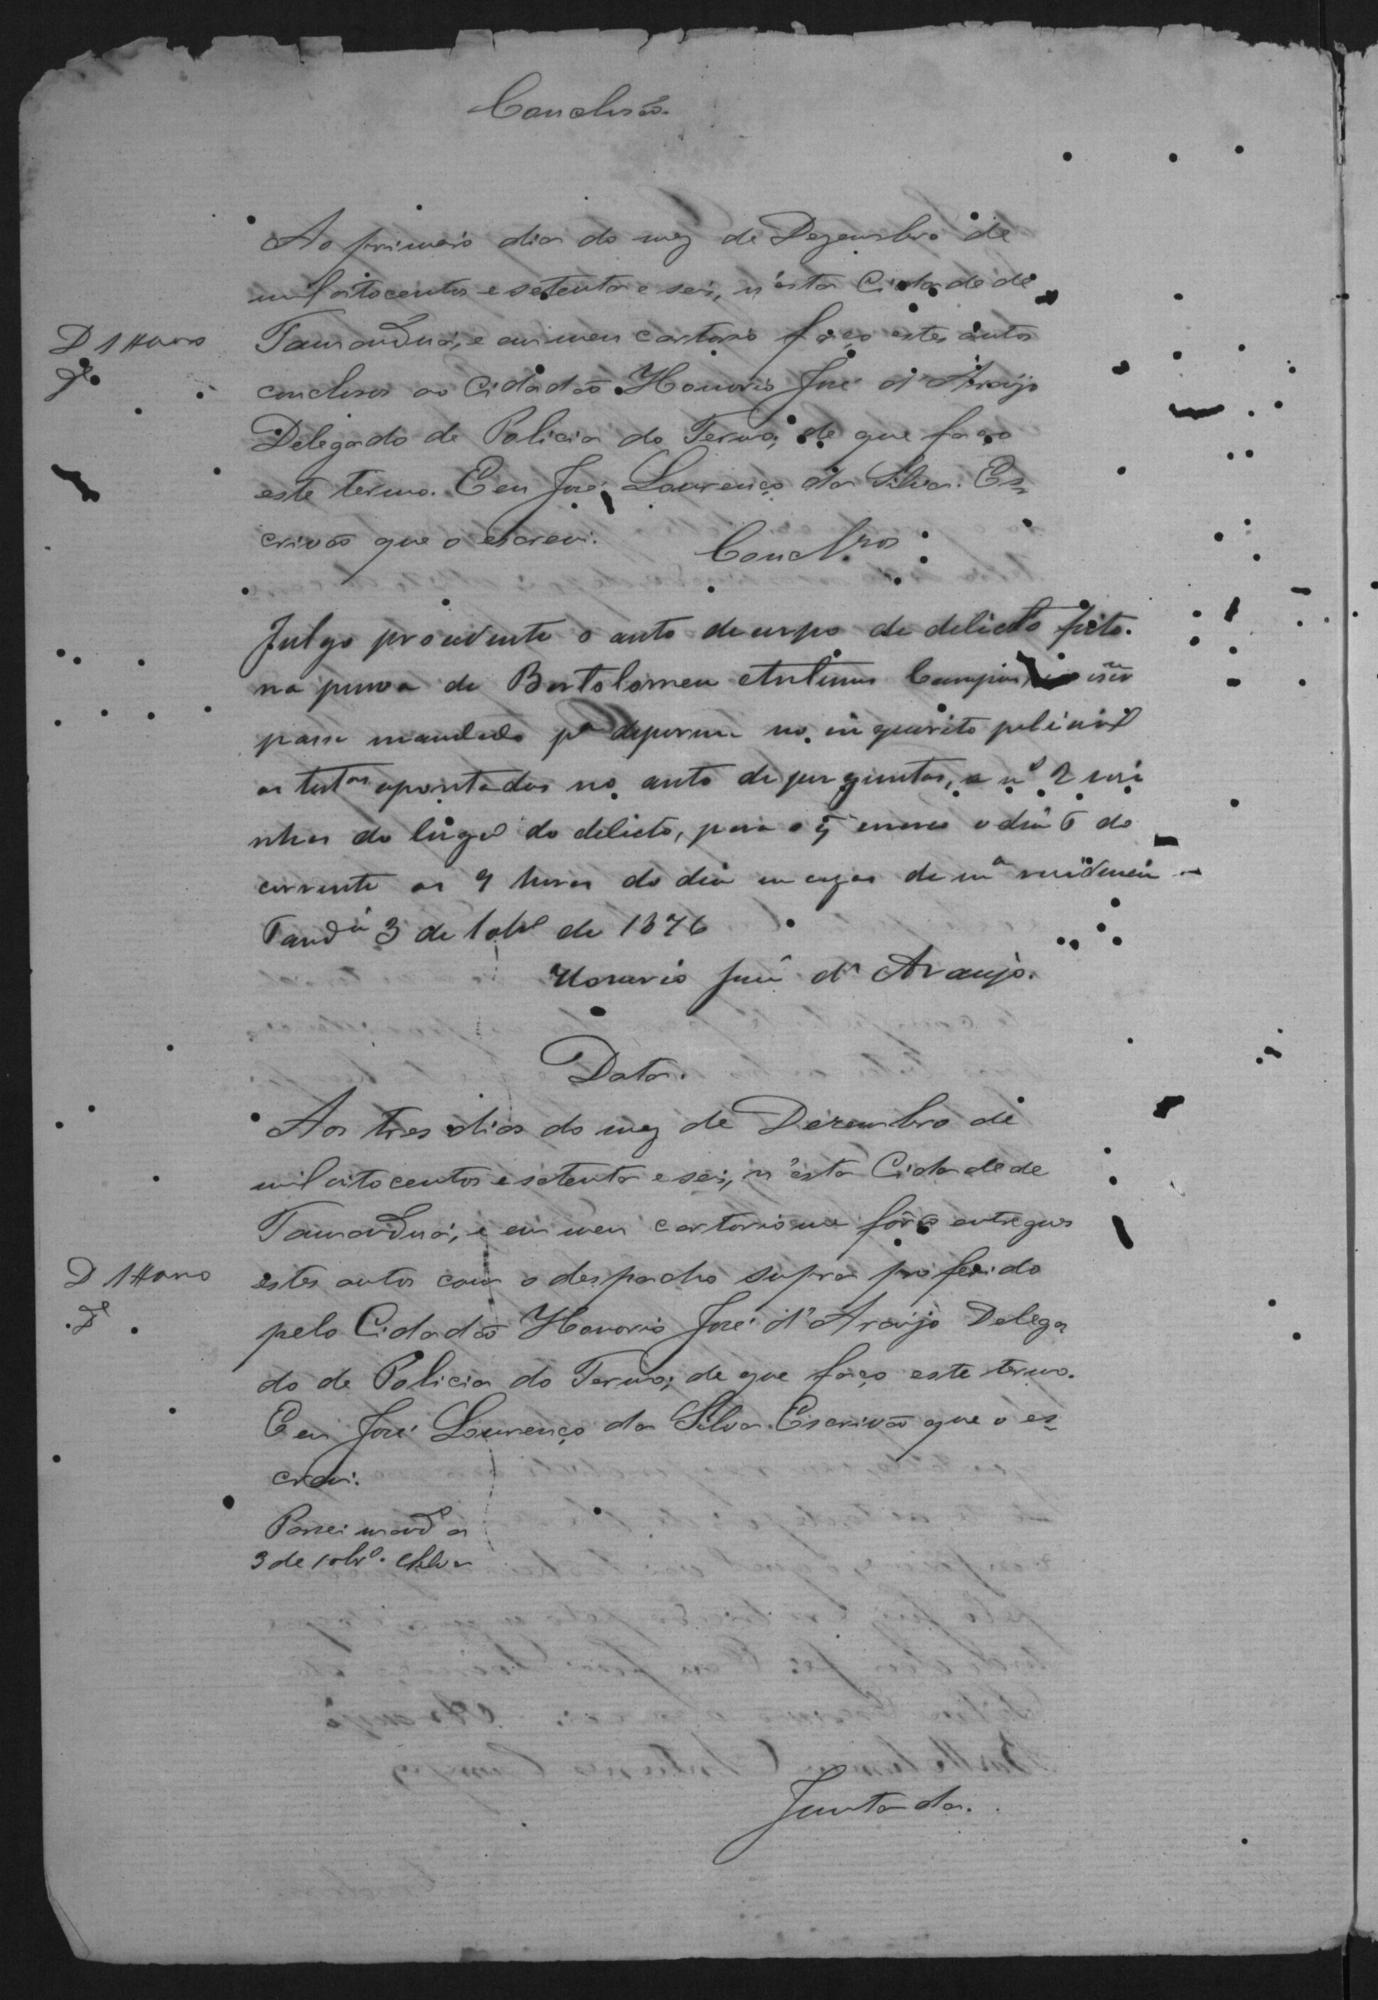 Conclusão.
Ao primeiro dia do mez de Dezembro de
mil oitocentos e setenta e seis, n'esta Cidade de
Tamanduá, e em meu cartorio faço estes autos
conclusos ao Cidadão Honorio José d'Araujo
Delegado de Policia do Termo; de que faço
este termo. Eeu José Lourenço da Silva. Es=
crivão que o escrevi.
Conclsos
Julgo procedente o auto de corpo de delicto feito
na pessoa de Bartolomeu Antunes Campos, o escr
passe mandado pª deporem no inquerito policial
as testas apontadas no auto de perguntas, e nº 2 visi
nhas do lugar do delicto, para o q marco o dia 6 do
corrente as 9 horas do dia em cazas de mª residencia
Tandá 3 de 10bro de 1876
Honorio José d'Araujo.
Data.
Aos tres dias do mez de Dezembro de
mil oitocentos e setenta e seis, n'esta Cidade de
Tamanduá, e em meu cartorio me forão entregues
estes autos com o despacho supra proferido
pelo Cidadão Honorio José d'Araujo Delega
do de Policia do Termo; de que faço este termo.
Eeu José Lourenço da Silva. Escrivão que o es=
crevi.
Passei mandº a
3 de 10brº. Silva
Juntada.